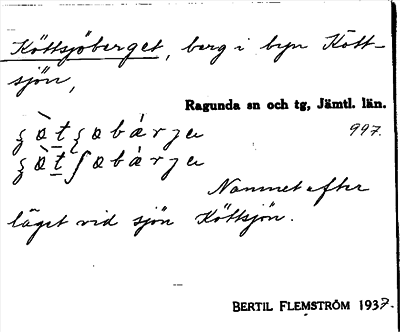 Köttsjöberget, berg i byn Kött-
sjön,
Ragunda sn och tg, Jämtl. län.
997.
Namnet efter
läget vid sjön Köttsjön.
BERTIL FLEMSTRÖM 1937.